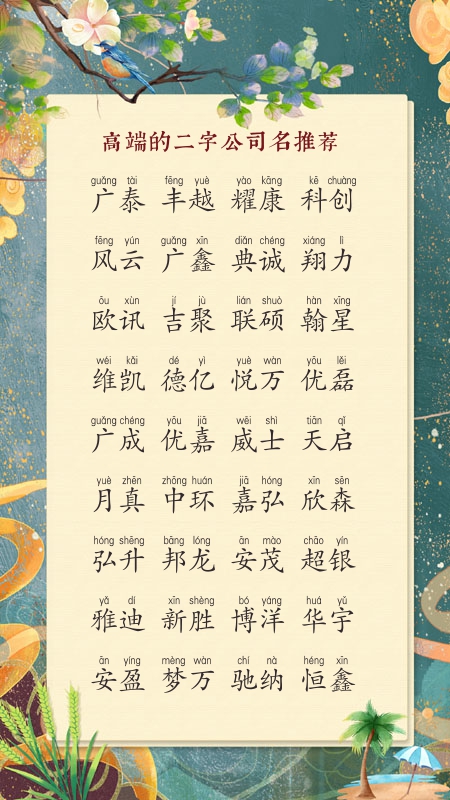 高端的二字公司名推荐
guǎng tài fēng yuè yào kāng kē chuàng
广泰 丰越 耀康 科创
fēng yún guǎng xīn diǎn chéng xiáng lì
风云 广鑫 典诚 翔力
ōu xùn jí jù lián shuò hàn xīng
欧讯 吉聚 联硕 翰星
wéi kǎi dé yì yuè wàn yōu lěi
维凯 德亿 悦万 优磊
guǎng chéng yōu jiā wēi shì tiān qǐ
广成 优嘉 威士 天启
yuè zhēn zhōng huán jiā hóng xīn sēn
月真 中环 嘉弘 欣森
hóng shēng bāng lóng ān mào chāo yín
弘升 邦龙 安茂 超银
yǎ dí xīn shèng bó yáng huá yǔ
雅迪 新胜 博洋 华宇
ān yíng mèng wàn chí nà héng xīn
安盈 梦万 驰纳 恒鑫